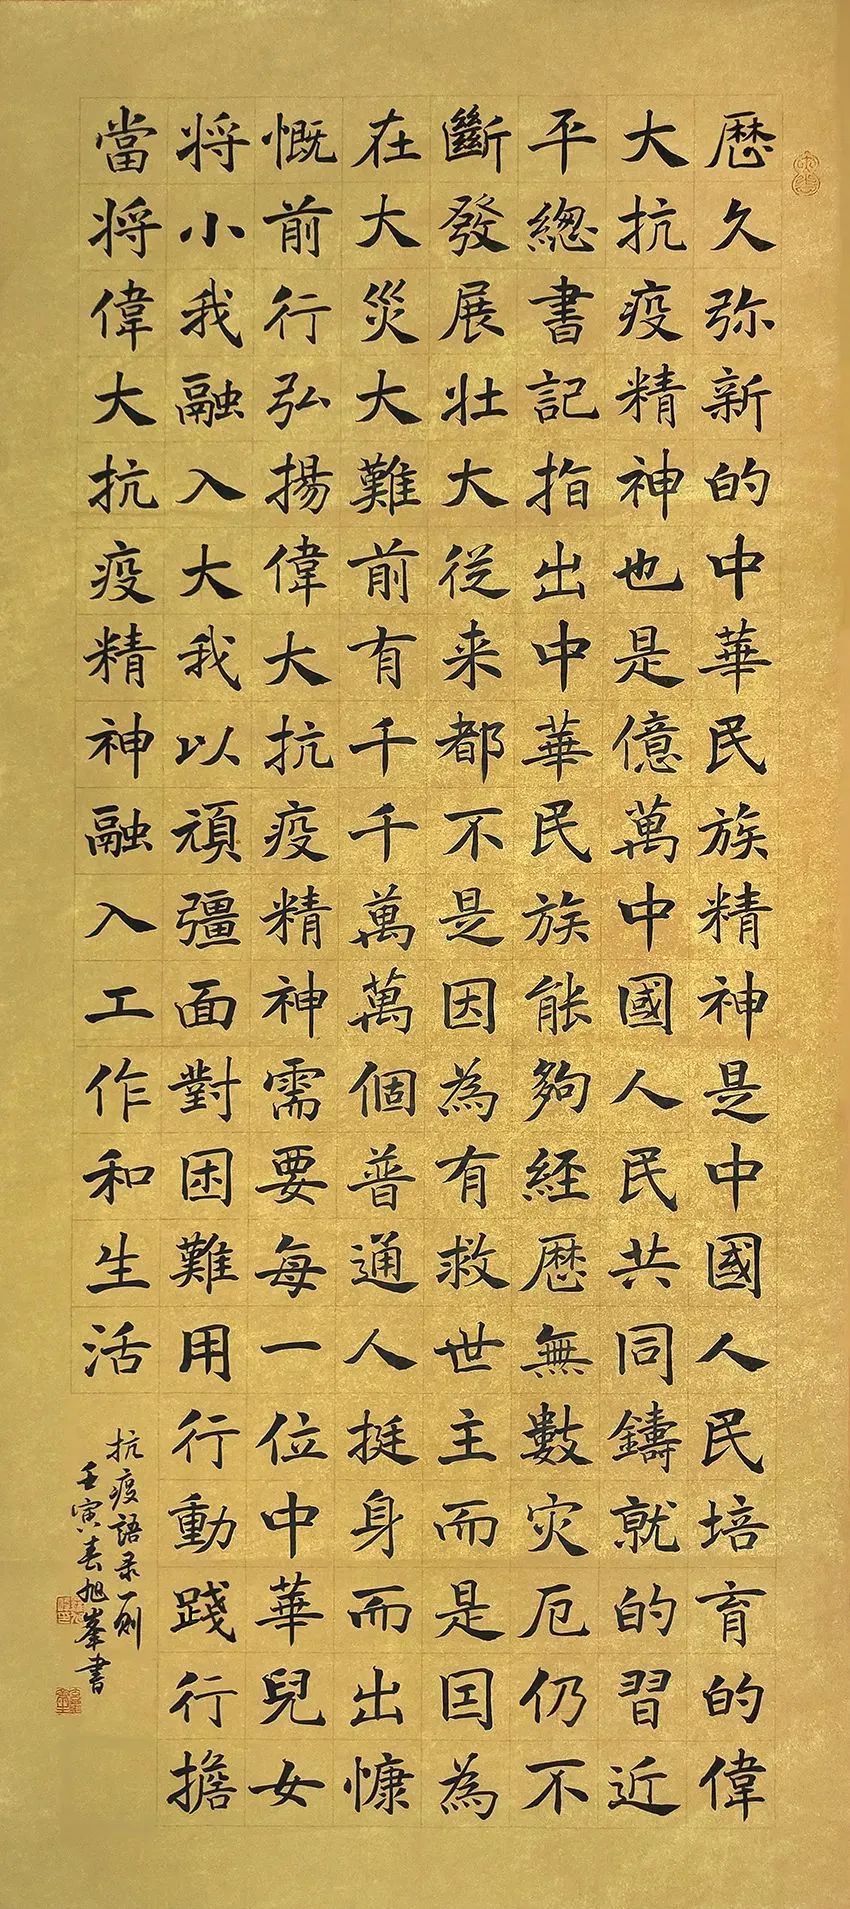 歷久弥新的中華民族精神是中國人民培育的偉
大抗疫精神也是億萬中國人民共同鑄就的習近
平總書記指出中華民族能夠經歷無數灾厄仍不
斷發展壯大從来都不是因為有救世主而是因為
在大災大難前有千千萬萬個普通人挺身而出慷
慨前行弘揚偉大抗疫精神需要每一位中華兒女
将小我融入大我以頑彊面對困難用行動踐行擔
當将偉大抗疫精神融入工作和生活
抗疫語录一則
壬寅春旭峯書